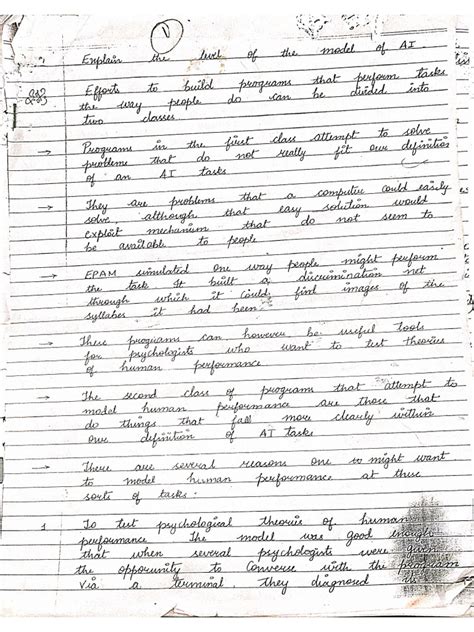 1
Explain the level of the model of AI.
Efforts to build programs that perform tasks
the way people do can be divided into
two classes
→ Programs in the first class attempt to solve
problems that do not really fit our definition
of an AI tasks
→ They are problems that a computer could easily
solve, although that easy solution would
exploit mechanism that do not seem to
be available to people
→ EPAM simulated one way people might perform
the task It built a discrimination net
through which it could find images of the
syllabes it had been
→ These programs can however be useful tools
for psychologists who want to test theories
of human performance
→ The second class of programs that attempt to
model human performance are those that
do things that fall more clearly within
our definition of AI tasks
→ There are several reasons one might want
to model human performance at these
sorts of tasks:
1 To test psychological theories of human
performance The model was good enough
that when several psychologists were given
the opportunity to converse with the program
via a terminal, they diagnosed